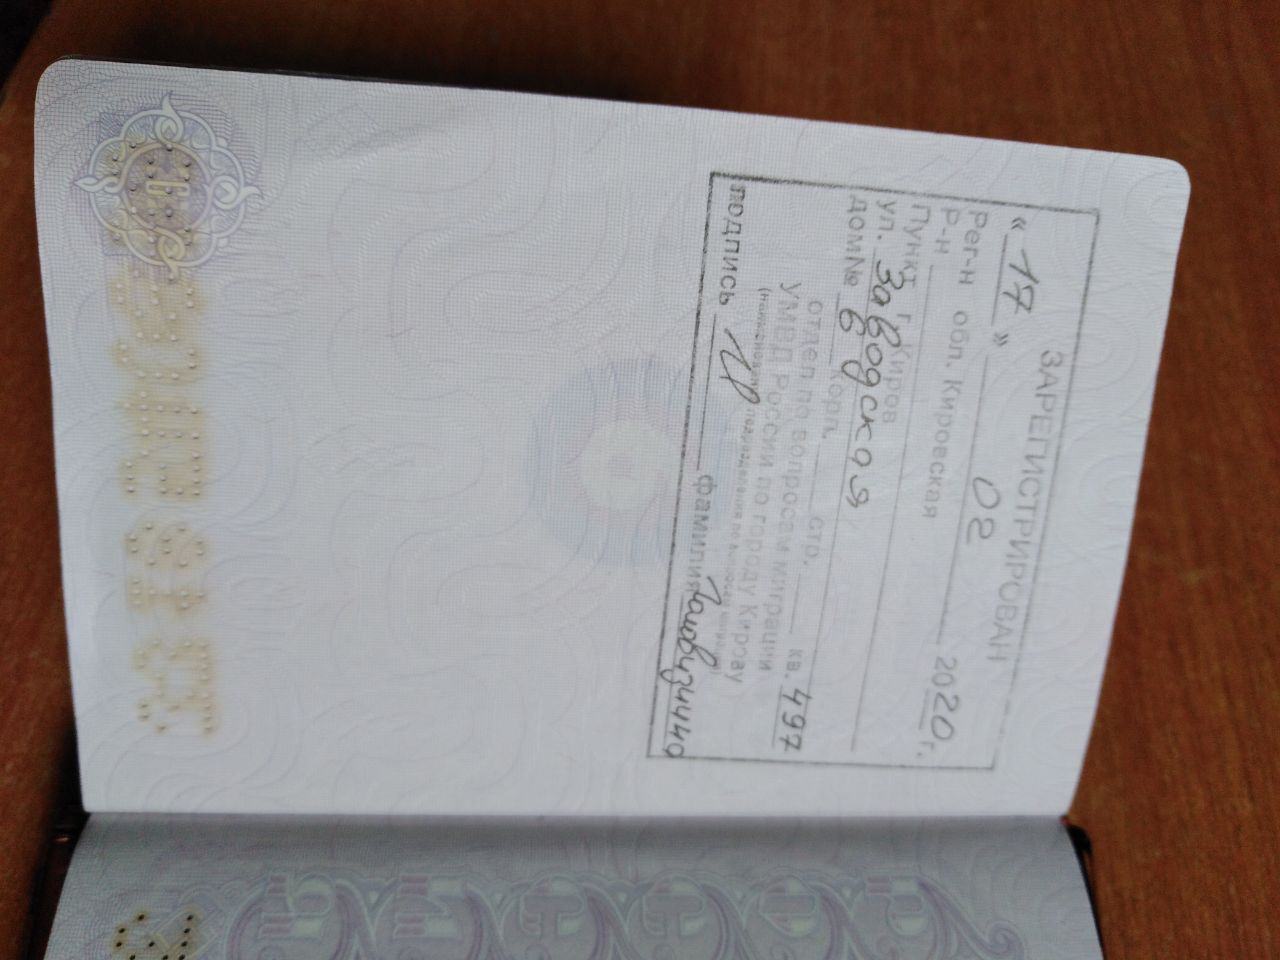 ЗАРЕГИСТРИРОВАН
« 17 » 02 2020 г.
Рег-н обл. Кировская
Р-н
Пункт г. Киров
ул. Заводская
дом№ 6 корп. стр. кв. 497
отдел по вопросам миграции
УМВД России по городу Кирову
(наименование подразделения по вопросам миграции)
подпись фамилия